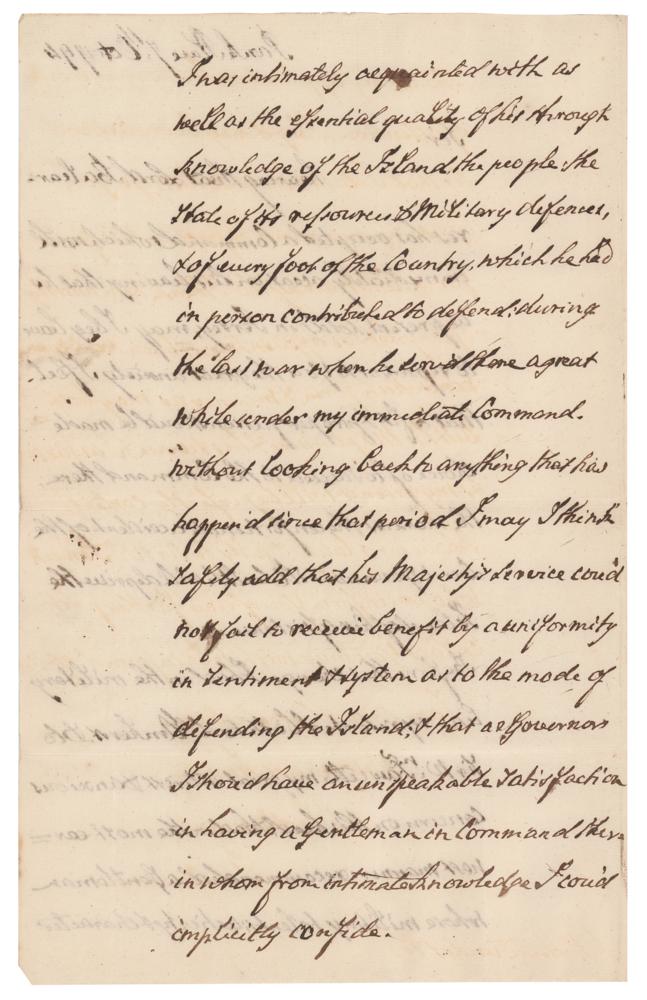 I was intimately acquainted with as
well as the essential quality of his through
knowledge of the Island, the people, the
State of its resources & Military defences,
& of every foot of the Country, which he had
in person contributed to defend during
the last war when he serv'd there a great
while under my immediate Command.
without looking back to anything that has
happen'd since that period I may I think
safely add that his Majesty's Service cou'd
not fail to receive benefit by a uniformity
in Sentiment & System as to the mode of
defending the Island; & that as Governor
I shou'd have an unspeakable satisfaction
in having a Gentleman in Command there
in whom from intimate knowledge I cou'd
implicitly confide.